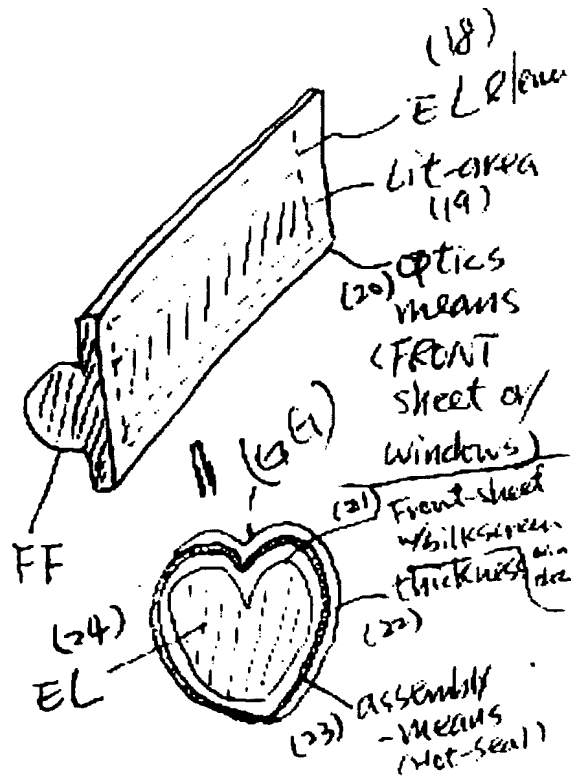 (18)
EL
Lit-area
(19)
(20) optics
means
(FRONT
sheet or
windows)
FF
(21) Front-sheet
w/silkscreen
thickness
(22)
(24)
EL
(23) assembly
-means
(Hot-seal)